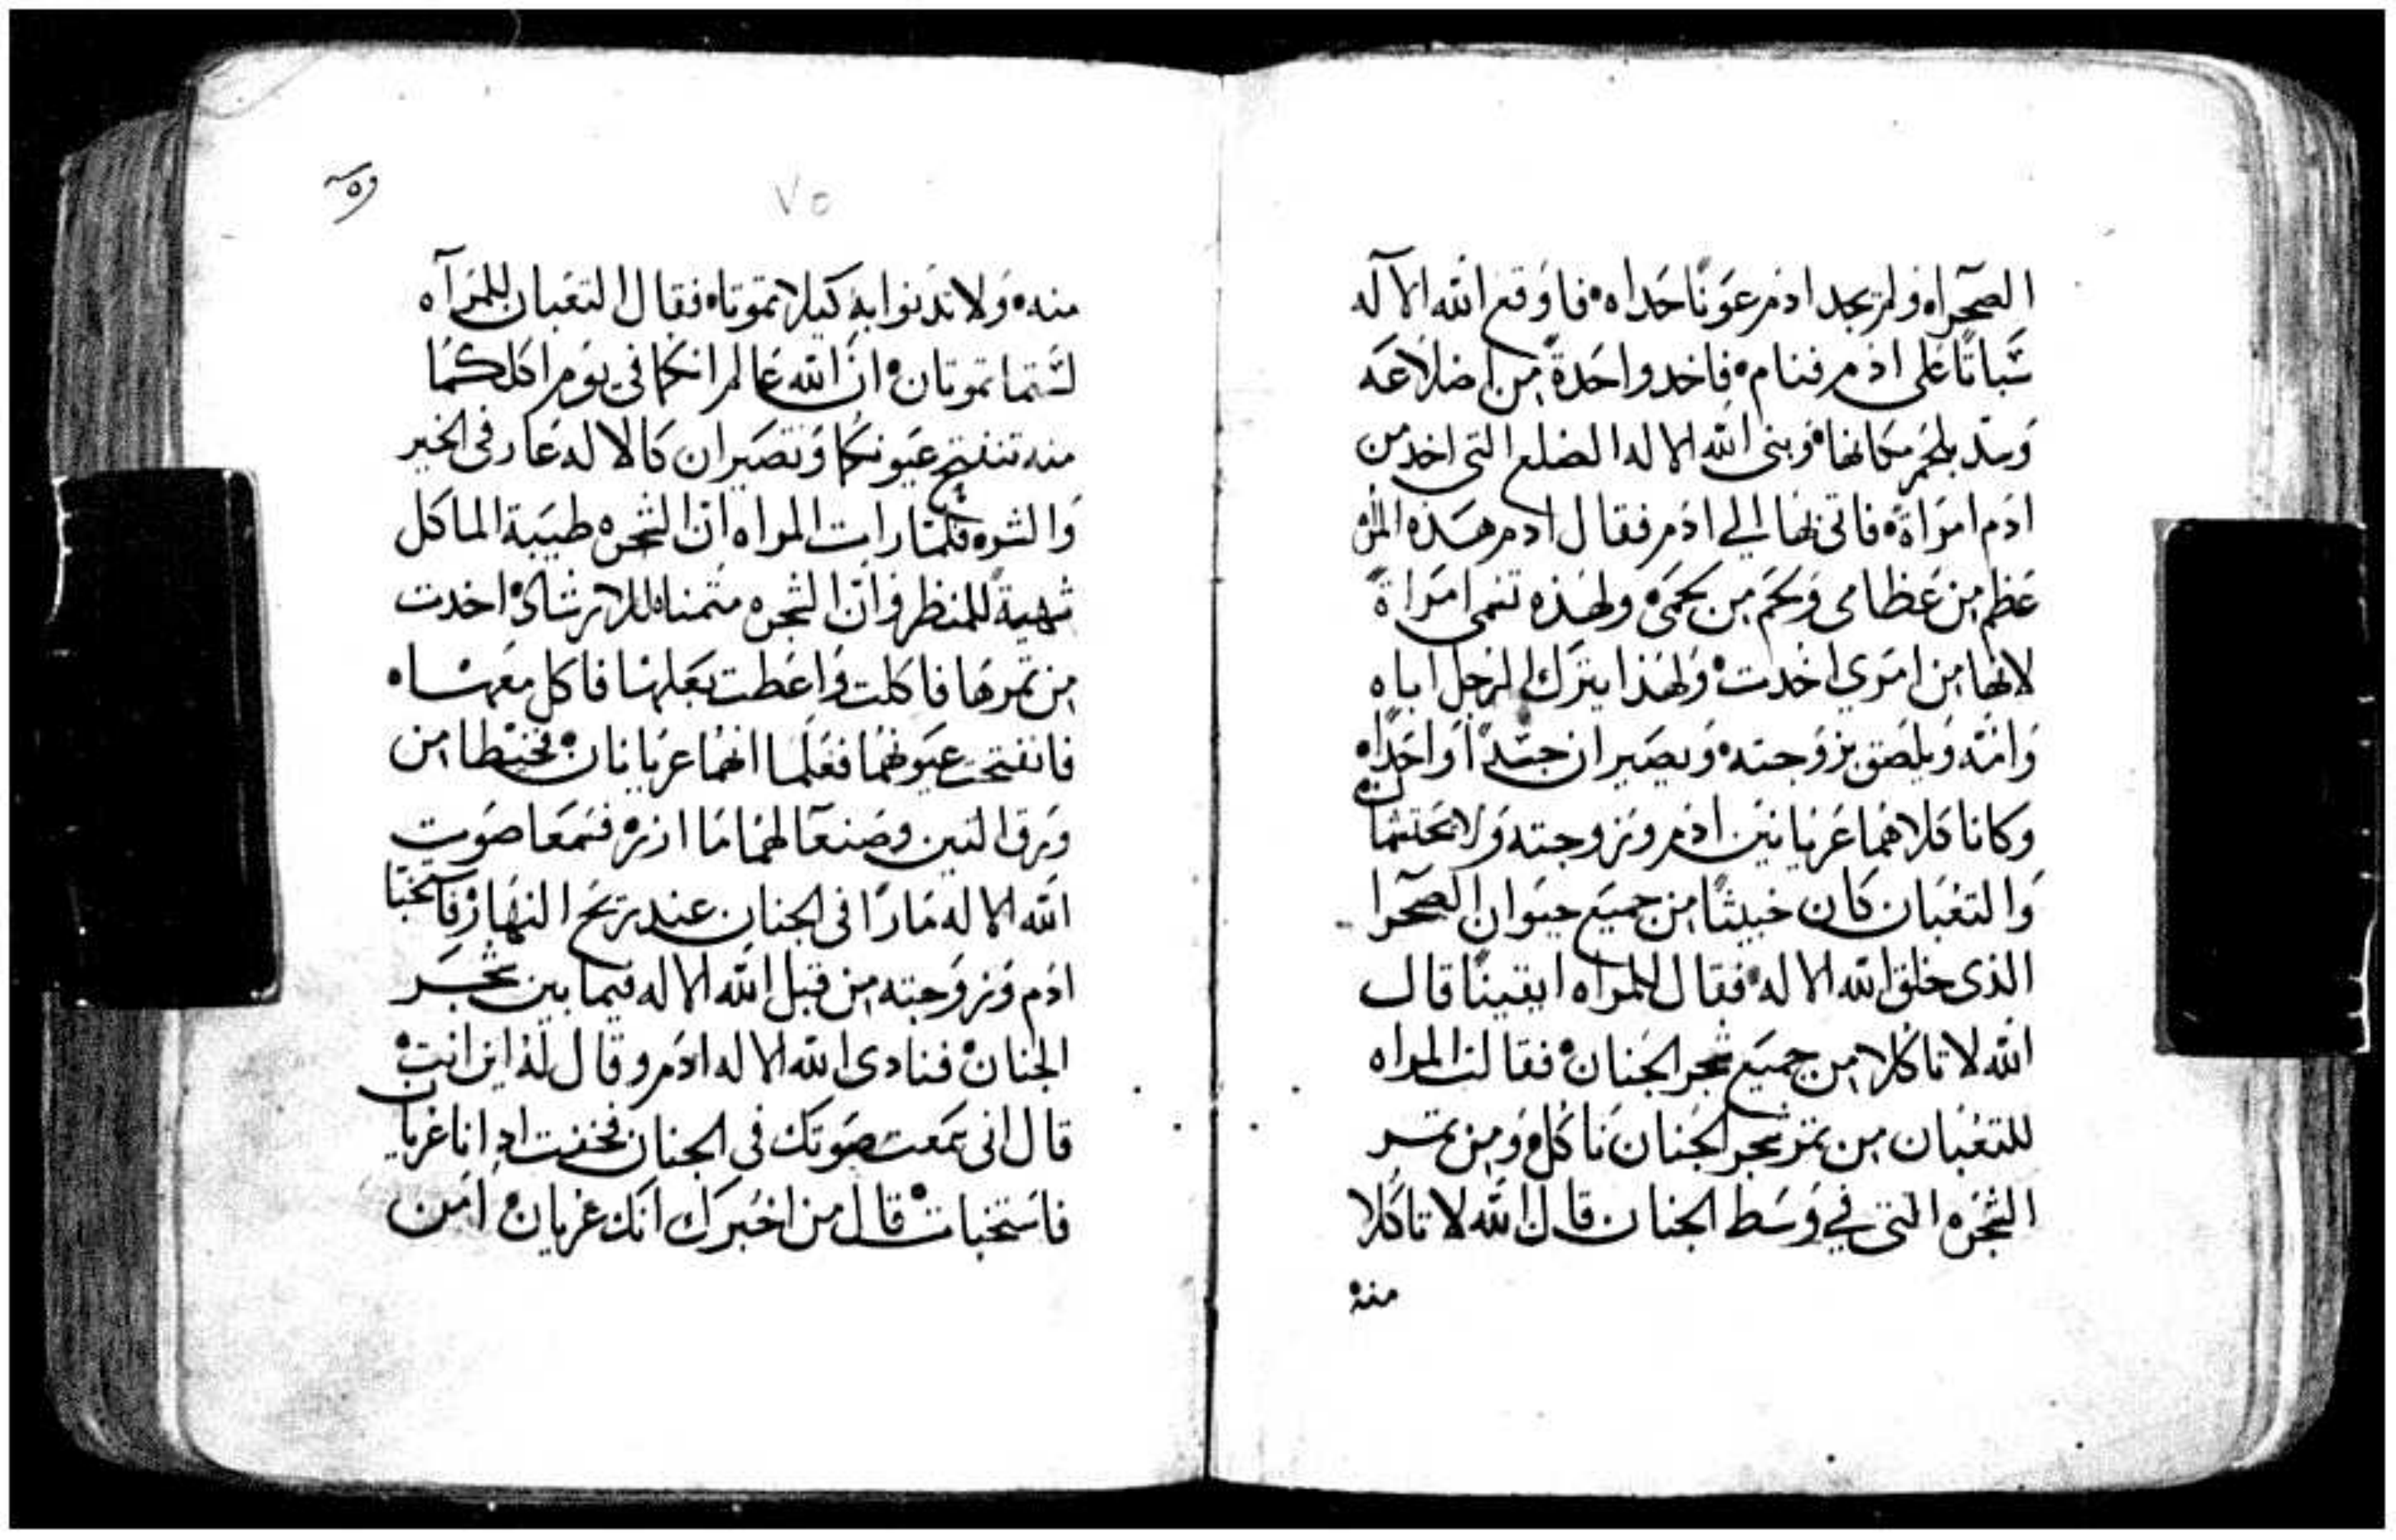 الصحراه ولم يجد ادم عونًا حداه فاوقع الله الآله
سَّباتًا على ادم فنام فاخد واحدةً من اضلاعه
وسد بلحم مكانها وبنى الله الاله الضلع التي اخد من
ادم امراة فاتى بها الي ادم فقال ادم هذه المرَّه
عظم من عظامى ولحم من لحمى ولهذه تسمى امراةً
لانها من امري اخدت ولهذا يترك الرجل اباه
وامّه ويلصق بزوجته ويصيران جسدًا واحدًا
وكانا كلاهما عريانين ادم وزوجته ولا يحتشمان
والتعبان كان خبيثًا من جميع حيوان الصحرا
الذى خلق الله الاله فقال للمراه ايقينًا قال
الله لا تاكلا من جميع شجر الجنان فقالت المراه
للتعبان من تمر شجر الجنان ناكل ومن تمر
الشجره التى في وسط الجنان قال الله لا تاكلا
منه
٧٥
منه ولا تدنوا به كيلا تموتا فقال التعبان للمرآه
لستما تموتان انّ الله عالم انكما فى يوم اكلكما
منه تنفتح عيونكما وتصيران كالاله عارفى الخير
والشره فلما رات المراه ان الشجره طيبة الماكل
شهيةً للمنظر وانّ الشجره متمناه للارشاد اخدت
من تمرها فاكلت واعطت بعلها فاكل معها
فانفتحت عيونهما فعلما انهما عريانان فخيطا من
ورق التين وصنعا لهما مازر فسمعا صوت
الله الاله مارًا فى الجنان عند ريح النهار فاستخبا
ادم وزوجته من قبل الله الاله فيما بين شجر
الجنان فنادى الله الاله ادم وقال له اين انت
قال انى سمعت صوتك فى الجنان فخفت اد انا عريان
فاستخبات قال من اخبرك انك عريان امن